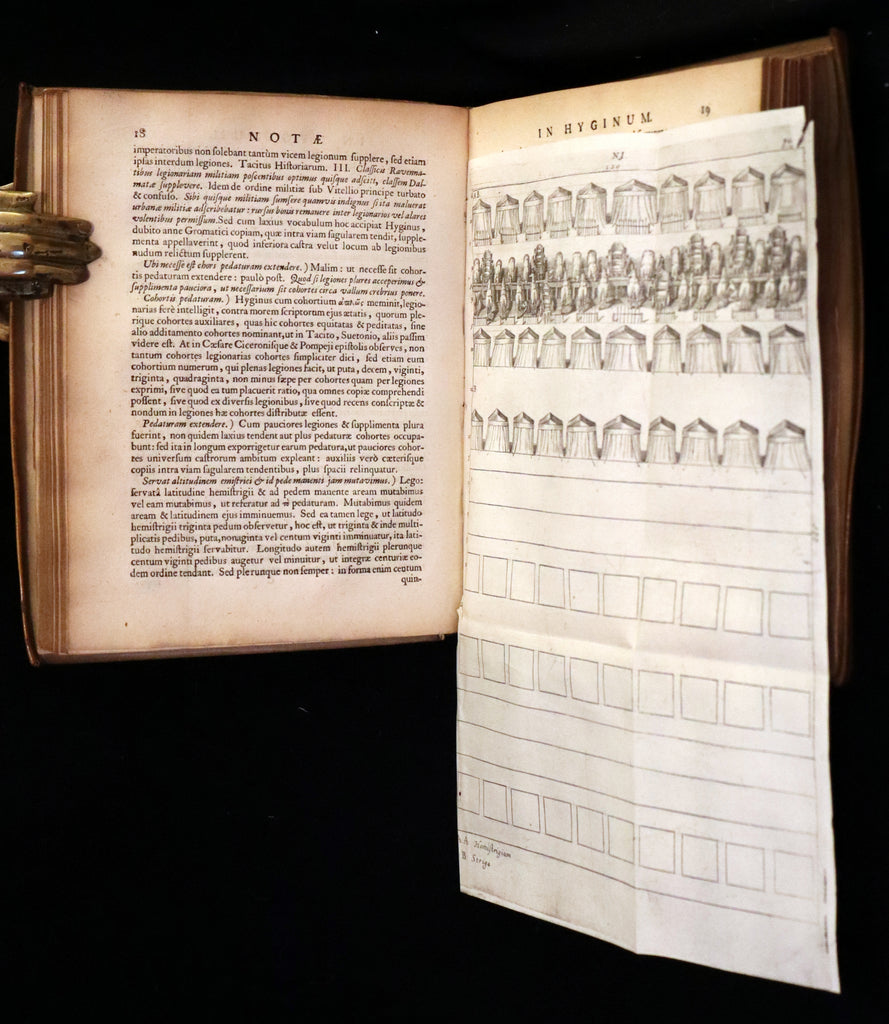 18 NOTÆ
imperatoribus non solebant tantùm vicem legionum supplere, sed etiam
ipsas interdum legiones. Tacitus Historiarum. III. Classica Ravenna-
tibus legionariam militiam poscentibus optimus quisque adsciti, classem Dal-
matæ supplevere. Idem de ordine militiæ sub Vitellio principe turbato
& confuso. Sibi quisque militiam sumsere quamvis indignus si ita maluerat
urbanæ militiæ adscribebatur: rursus bonis remanere inter legionarios vel alares
volentibus permissum. Sed cum laxius vocabulum hoc accipiat Hyginus,
dubito anne Gromatici copiam, quæ intra viam sagularem tendit, supple-
menta appellaverint, quod inferiora castra velut locum ab legionibus
nudum relictum supplerent.
Ubi necesse est chors pedaturam extendere.) Malim: ut necesse sit cohor-
tis pedaturam extendere: paulò post. Quod si legiones plures acceperimus &
supplimenta pauciora, ut necessarium sit cohortes circa vallum crebrius ponere.
Cohortis pedaturam.) Hyginus cum cohortium meminit, legio-
narias ferè intelligit, contra morem scriptorum ejus ætatis, quorum ple-
rique cohortes auxiliares, quas hic cohortes equitatas & peditatas, sine
alio additamento cohortes nominant, ut in Tacito, Suetonio, aliis passim
videre est. At in Cæsare Ciceronisque & Pompeji epistolis observes, non
tantum cohortes legionarias cohortes simpliciter dici, sed etiam eum
cohortium numerum, qui plenas legiones facit, ut puta, decem, viginti,
triginta, quadraginta, non minus sæpe per cohortes quam per legiones
exprimi, sive quod ea tum placuerit ratio, qua omnes copiæ comprehendi
possent, sive quod ex diversis legionibus, sive quod recens conscriptæ &
nondum in legiones hæ cohortes distributæ essent.
Pedaturam extendere.) Cum pauciores legiones & supplimenta plura
fuerint, non quidem laxius tendent aut plus pedaturæ cohortes occupa-
bunt: sed ita in longum exporrigetur earum pedatura, ut pauciores cohor-
tes universum castrorum ambitum expleant: auxiliis verò cæterisque
copiis intra viam sagularem tendentibus, plus spacii relinquatur.
Servat altitudinem emistrici & id pede manenti jam mutavimus.) Lego:
servatâ latitudine hemistrigii & ad pedem manente aream mutabimus
vel eam mutabimus, ut referatur ad pedaturam. Mutabimus quidem
aream & latitudinem ejus imminuemus. Sed ea tamen lege, ut latitudo
hemistrigii triginta pedum observetur, hoc est, ut triginta & inde multi-
plicatis pedibus, puta, nonaginta vel centum viginti imminuatur, ita lati-
tudo hemistrigii servabitur. Longitudo autem hemistrigii plerunque
centum viginti pedibus augetur vel minuitur, ut integræ centuriæ eo-
dem ordine tendant. Sed plerunque non semper: in forma enim centum
quin-
IN HYGINUM. 19
N.I.
120
A Hemistrigium
B Striga